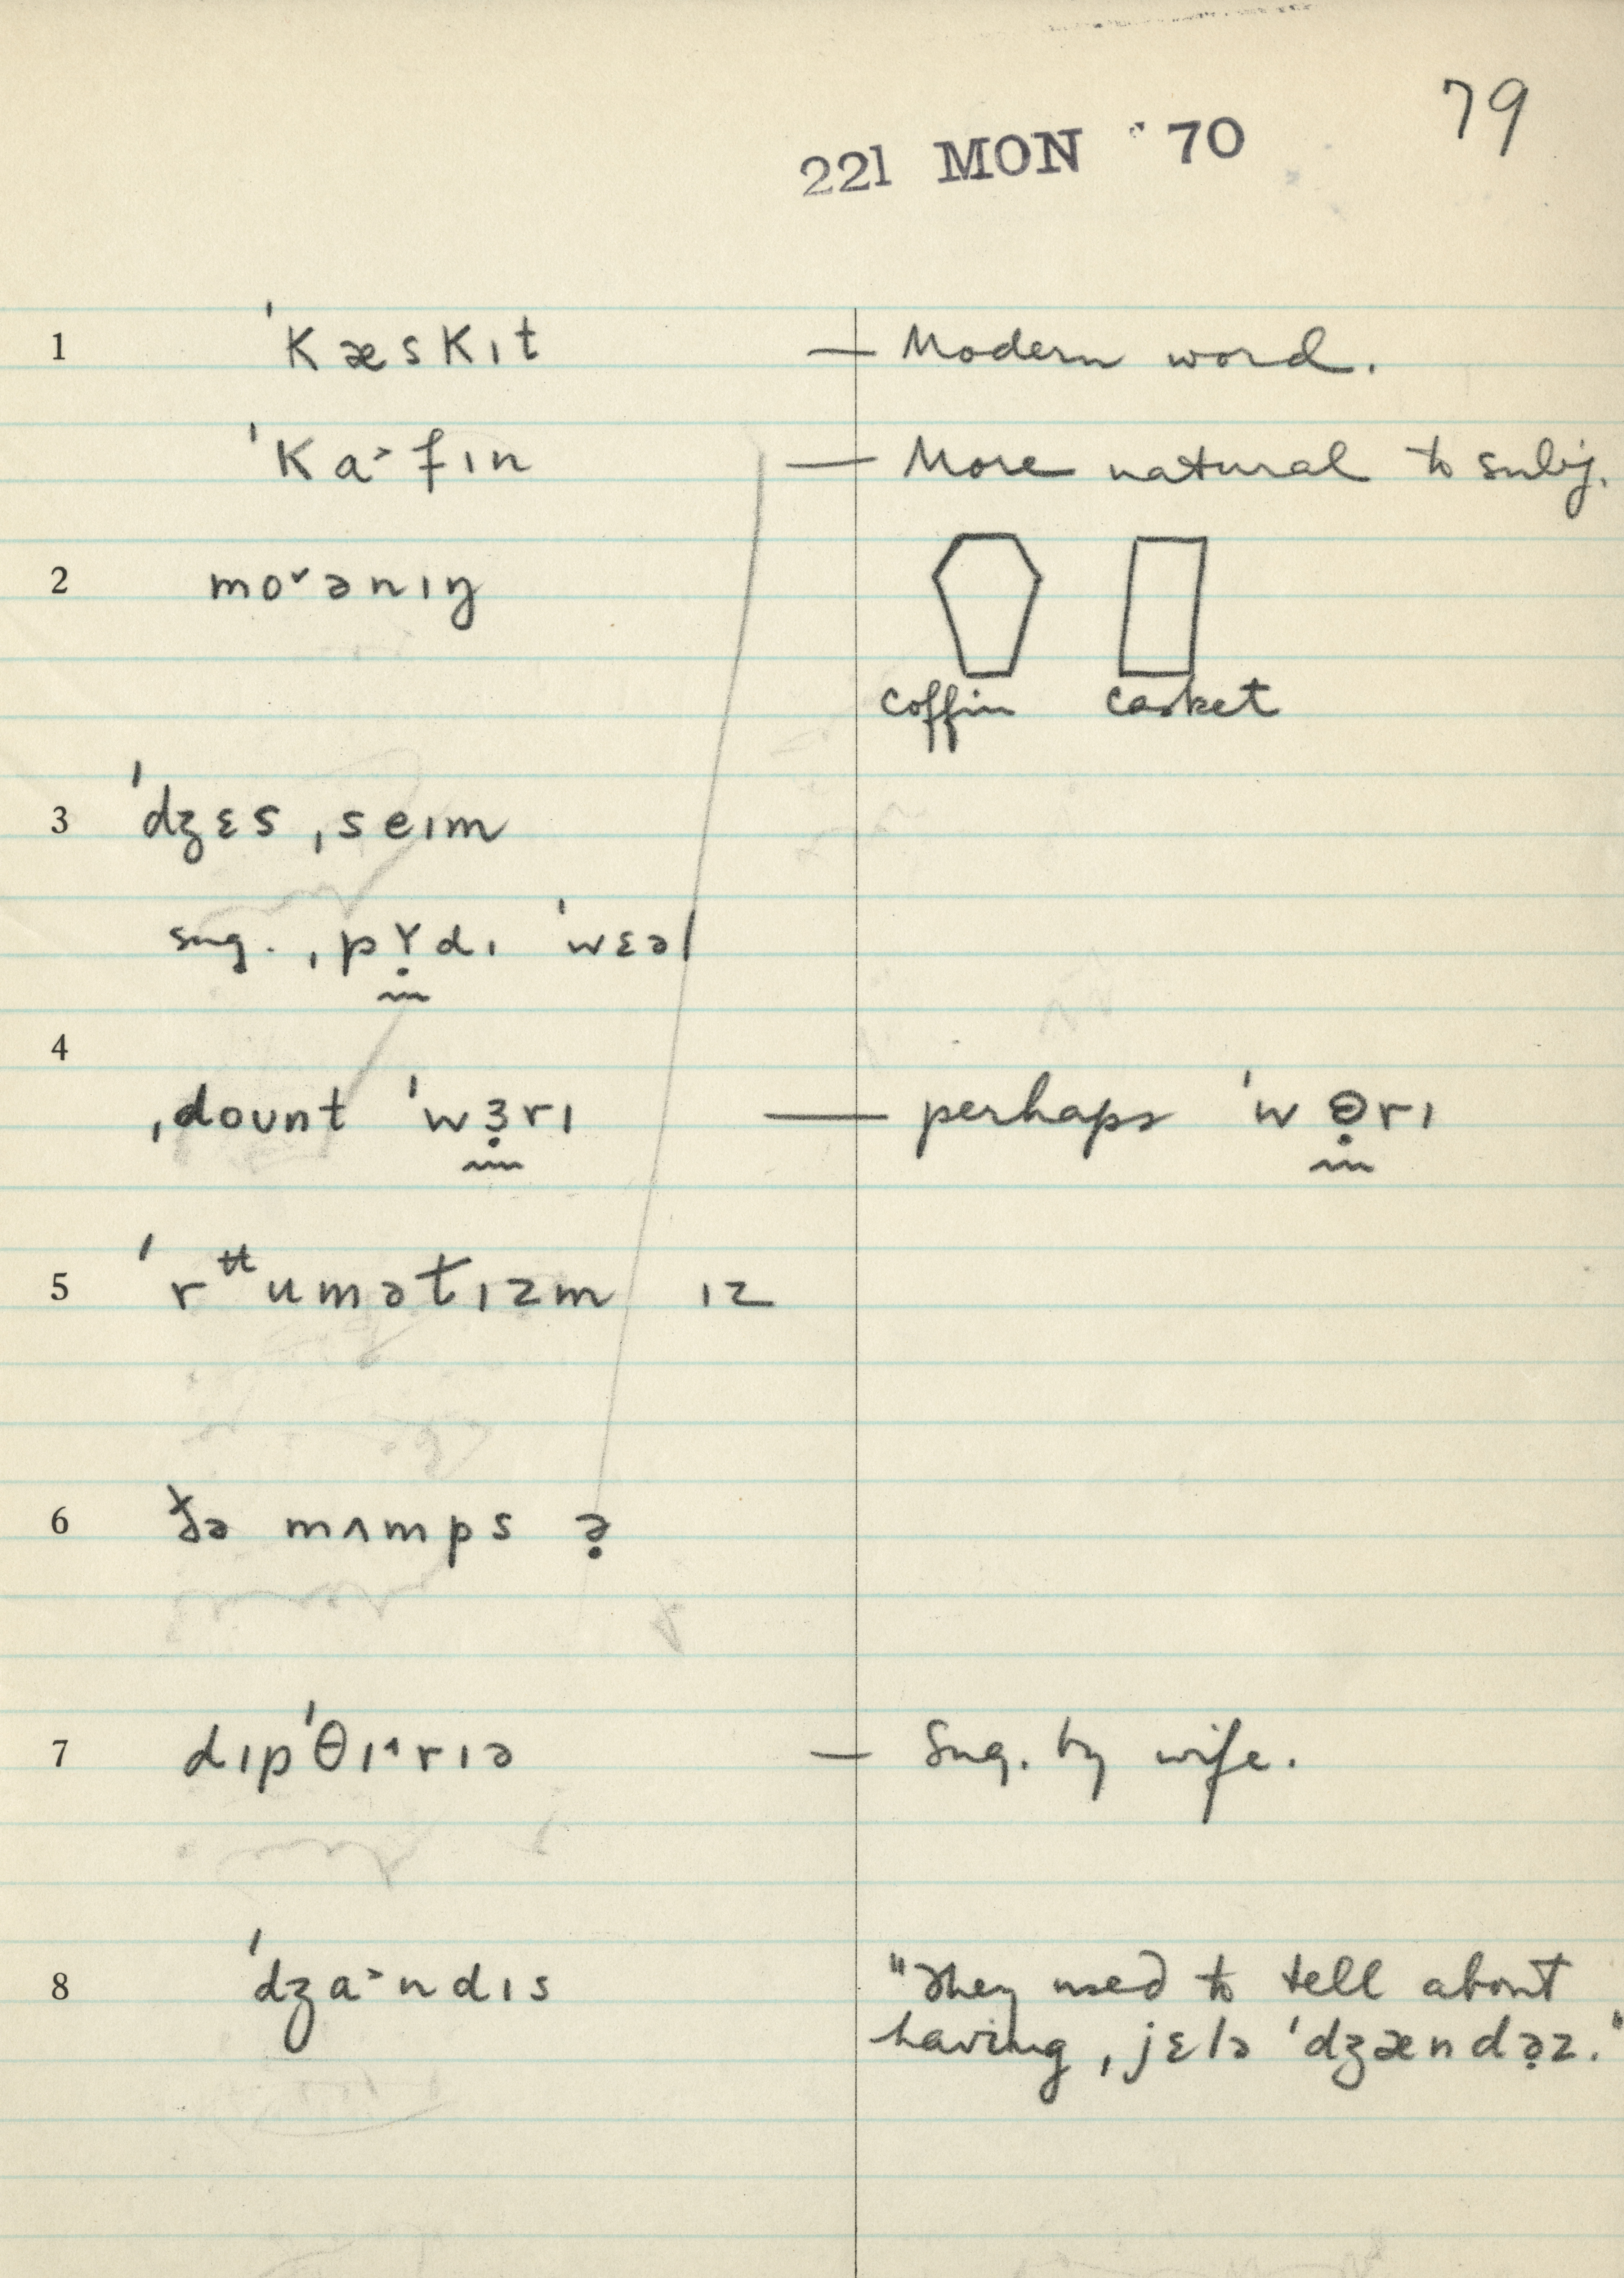 79
221 MON '70
1 ˈkæskɪt — Modern word.
ˈka˃fɪn — More natural to subj.
2 mo˅ənɪŋ
coffin casket
3 ˈdʒɛs ˌseɪm
sug. ˌpɤ̣dɪ ˈwɛəl
4
ˌdoʊnt ˈwɜ̣rɪ — perhaps ˈwɵ̣rɪ
5 ˈrᵾumətɪzm ɪz
6 ðə mʌmps ə̣
7 dɪpˈθɪ˄rɪə — Sug. by wife.
8 ˈdʒa˃ndɪs "They used to tell about
having ˌjɛlə ˈdʒændə̣z."